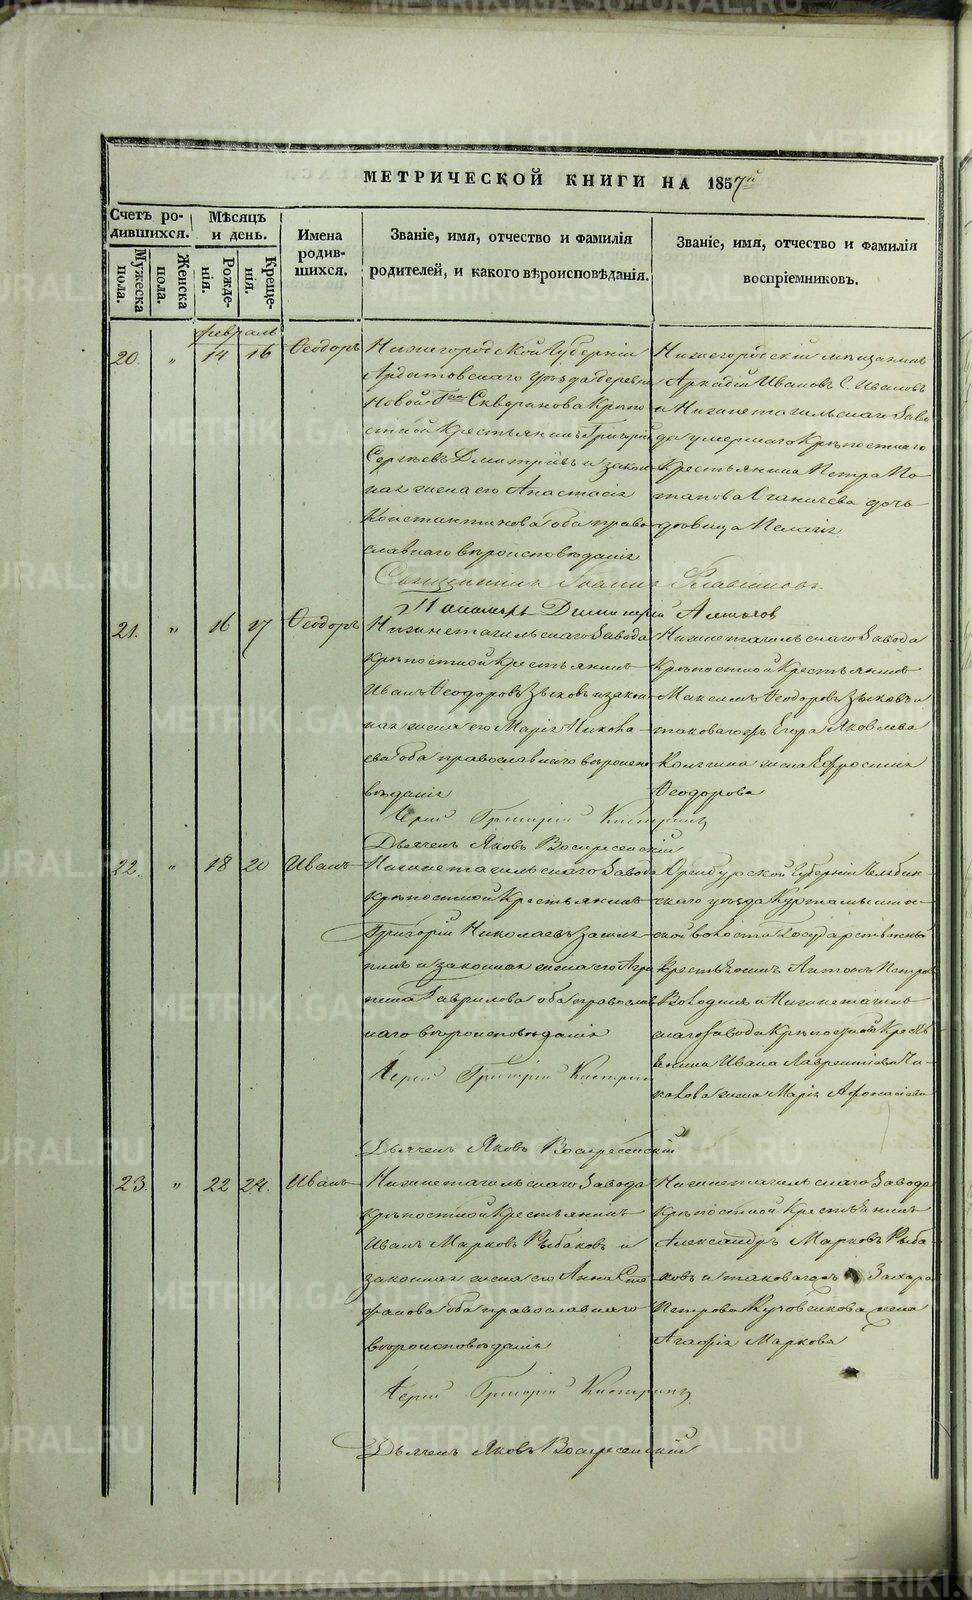 МЕТРИЧЕСКОЙ КНИГИ НА 1857й
Счетъ ро-
дившихся.
Мужеска
пола.
Женска
пола.
Мѣсяцъ
и день.
Рожде-
нія.
Креще-
нія.
Имена
родив-
шихся.
Званіе, имя, отчество и фамилія
родителей, и какого вѣроисповѣданія.
Званіе, имя, отчество и фамилія
воспріемниковъ.
февраль
20. " 14 16 Ѳеодоръ
Нижегородской Губерніи
Ардатовскаго уѣзда деревни
Новой Скворцова Крѣпо
стной Крестьянинъ Григорій
Сергѣевъ Дмитріевъ и закон
ная жена его Анастасія
Константинова оба право
славнаго вѣроисповѣданія
Нижегородскій мѣщанинъ
Аркадій Ивановъ С. Ивановъ
и Нижнетагильскаго Заво
да умершаго Крѣпостнаго
Крестьянина Петра По
тапова дочь
дѣвица Пелагія
Священникъ Іоаннъ Флавіановъ
Пономарь Димитрій
21. " 16 17 Ѳеодоръ
Нижнетагильскаго Завода
крѣпостной Крестьянинъ
Иванъ Ѳеодоровъ Зыковъ и закон
ная жена его Марія Никола
ева оба православнаго вѣроиспо
вѣданія
Нижнетагильскаго Завода
Крѣпостной Крестьянинъ
Максимъ Ѳеодоровъ Зыковъ и
таковагожъ Егора Яковлева
жена Ефросинія
Ѳеодорова
Іерей Григорій
Дьячекъ Яковъ Воскресенскій
22. " 18 20 Иванъ
Нижнетагильскаго Завода
крѣпостной Крестьянинъ
Григорій Николаевъ
и законная жена его Агри
пина Гаврилова оба православ
наго вѣроисповѣданія
Оренбургской Губерніи Челябин
скаго уѣзда Куртамыш
ской волости Государственный
крестьянинъ Антонъ Петровъ
Володинъ и Нижнетагиль
скаго Завода Крѣпостной Кресть
янина Ивана Лаврентіева
жена Марія Афонасіева
Іерей Григорій
Дьячекъ Яковъ Воскресенскій
23. " 22 24. Иванъ
Нижнетагильскаго Завода
крѣпостной Крестьянинъ
Иванъ Марковъ Рыбаковъ и
законная жена его Анна Сте
фанова оба православнаго
вѣроисповѣданія
Нижнетагильскаго Завода
Крѣпостной Крестьянинъ
Александръ Марковъ Рыба
ковъ и таковагожъ Захара
Петрова жена
Агафія Маркова
Іерей Григорій
Дьячекъ Яковъ Воскресенскій
METRIKI.GASO-URAL.RU